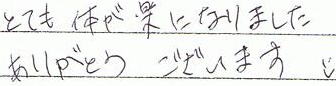 とても体が楽になりました
ありがとうございます